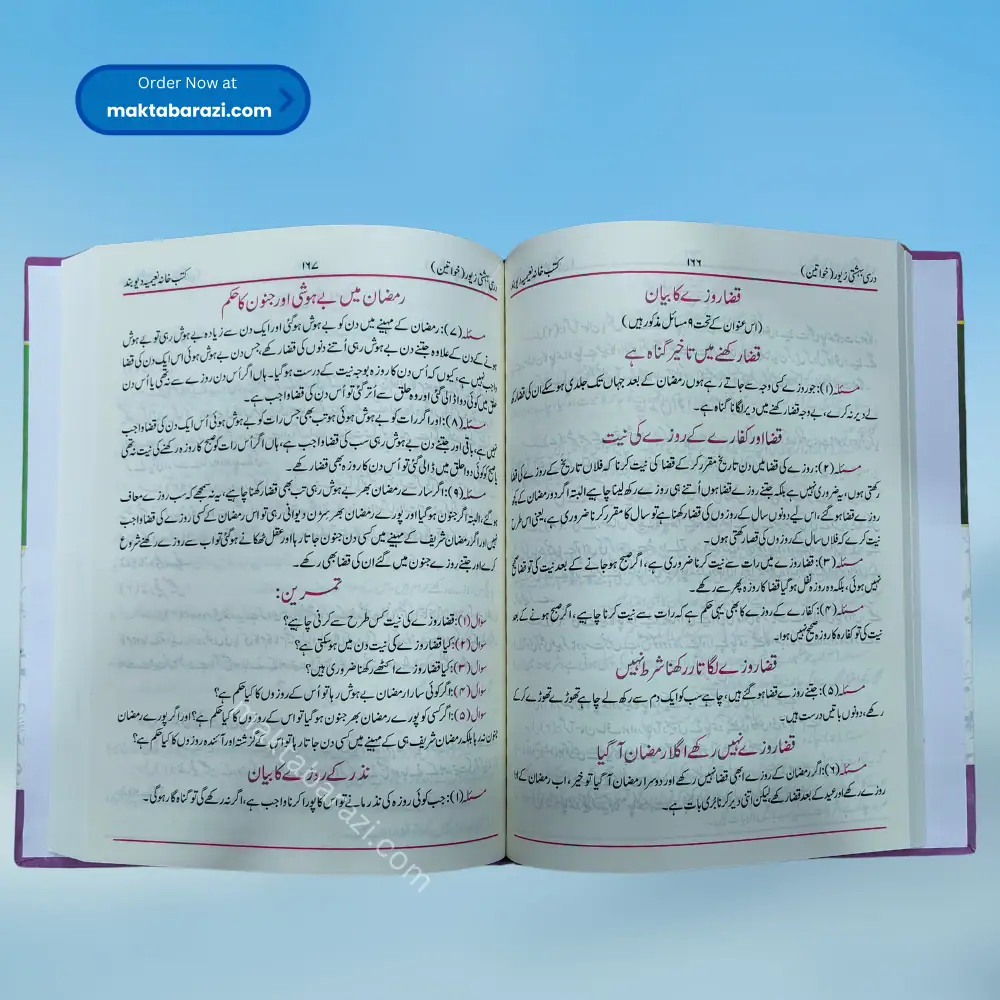 Order Now at
maktabarazi.com
درسی بہشتی زیور (خواتین) ۱۶۶ کتب خانہ نعیمیہ دیوبند
قضا روزے کا بیان
(اس عنوان کے تحت ۹ مسائل مذکور ہیں)
قضا رکھنے میں تاخیر گناہ ہے
مسئلہ (۱): جو روزے کسی وجہ سے جاتے رہے ہوں رمضان کے بعد جہاں تک جلدی ہو سکے ان کی قضا رکھ
لے دیر نہ کرے، بے وجہ قضا رکھنے میں دیر لگانا گناہ ہے۔
قضا اور کفارے کے روزے کی نیت
مسئلہ (۲): روزے کی قضا میں دن تاریخ مقرر کر کے قضا کی نیت کرنا کہ فلاں تاریخ کے روزے کی قضا
رکھتی ہوں، یہ ضروری نہیں ہے بلکہ جتنے روزے قضا ہوں اُتنے ہی روزے رکھ لینا چاہیے البتہ اگر دو رمضان کے کچھ
روزے قضا ہو گئے، اس لیے دونوں سال کے روزوں کی قضا رکھنا ہے تو سال کا مقرر کرنا ضروری ہے، یعنی اس طرح
نیت کرے کہ فلاں سال کے روزوں کی قضا رکھتی ہوں۔
مسئلہ (۳): قضا روزے میں رات سے نیت کرنا ضروری ہے، اگر صبح ہو جانے کے بعد نیت کی تو قضا صحیح
نہیں ہوئی، بلکہ وہ روزہ نفل ہو گیا قضا کا روزہ پھر سے رکھے۔
مسئلہ (۴): کفارے کے روزے کا بھی یہی حکم ہے کہ رات سے نیت کرنا چاہیے، اگر صبح ہونے کے بعد
نیت کی تو کفارہ کا روزہ صحیح نہیں ہوا۔
قضا روزے لگاتار رکھنا شرط نہیں
مسئلہ (۵): جتنے روزے قضا ہو گئے ہیں؛ چاہے سب کو ایک دم سے رکھ لے چاہے تھوڑے تھوڑے کر کے
رکھے، دونوں باتیں درست ہیں۔
قضا روزے نہیں رکھے اگلا رمضان آ گیا
مسئلہ (۶): اگر رمضان کے روزے ابھی قضا نہیں رکھے اور دوسرا رمضان آ گیا تو خیر، اب رمضان کے
روزے رکھے اور عید کے بعد قضا رکھے لیکن اتنی دیر کرنا بُری بات ہے۔
درسی بہشتی زیور (خواتین) ۱۶۷ کتب خانہ نعیمیہ دیوبند
رمضان میں بے ہوشی اور جنون کا حکم
مسئلہ (۷): رمضان کے مہینے میں دن کو بے ہوش ہو گئی اور ایک دن سے زیادہ بے ہوش رہی تو بے ہوش
ہونے کے دن کے علاوہ جتنے دن بے ہوش رہی اُتنے دنوں کی قضا رکھے، جس دن بے ہوش ہوئی اس ایک دن کی قضا
واجب نہیں ہے، کیوں کہ اُس دن کا روزہ بوجہ نیت کے درست ہو گیا۔ ہاں اگر اُس دن روزے سے نہ تھی یا اُس دن
حلق میں کوئی دوا ڈالی گئی اور وہ حلق سے اُتر گئی تو اُس دن کی قضا واجب ہے۔
مسئلہ (۸): اور اگر رات کو بے ہوش ہوئی ہو تب بھی جس رات کو بے ہوش ہوئی اُس ایک دن کی قضا واجب
نہیں ہے، باقی اور جتنے دن بے ہوش رہی سب کی قضا واجب ہے، ہاں اگر اُس رات کو صبح کا روزہ رکھنے کی نیت نہ تھی
یا صبح کو کوئی دوا حلق میں ڈالی گئی تو اُس دن کا روزہ بھی قضا رکھے۔
مسئلہ (۹): اگر سارے رمضان بھر بے ہوش رہی تب بھی قضا رکھنا چاہیے، یہ نہ سمجھے کہ سب روزے معاف
ہو گئے، البتہ اگر جنون ہو گیا اور پورے رمضان بھر سڑن دیوانی رہی تو اس رمضان کے کسی روزے کی قضا واجب
نہیں اور اگر رمضان شریف کے مہینے میں کسی دن جنون جاتا رہا اور عقل ٹھکانے ہو گئی تو اب سے روزے رکھنے شروع
کرے اور جتنے روزے جنون میں گئے ان کی قضا بھی رکھے۔
تمرین:
سوال (۱): قضا روزے کی نیت کس طرح سے کرنی چاہیے؟
سوال (۲): کیا قضا روزے کی نیت دن میں ہو سکتی ہے؟
سوال (۳): کیا قضا روزے اکٹھے رکھنا ضروری ہیں؟
سوال (۴): اگر کوئی سارا رمضان بے ہوش رہا تو اُس کے روزوں کا کیا حکم ہے؟
سوال (۵): اگر کسی کو پورے رمضان بھر جنون ہو گیا تو اس کے روزوں کا کیا حکم ہے؟ اور اگر پورے رمضان
جنون نہ رہا بلکہ رمضان شریف ہی کے مہینے میں کسی دن جاتا رہا تو اس کے گزشتہ اور آئندہ روزوں کا کیا حکم ہے؟
نذر کے روزے کا بیان
مسئلہ (۱): جب کوئی روزہ کی نذر مانے تو اس کا پورا کرنا واجب ہے، اگر نہ رکھے گی تو گناہ گار ہو گی۔
maktabarazi.com